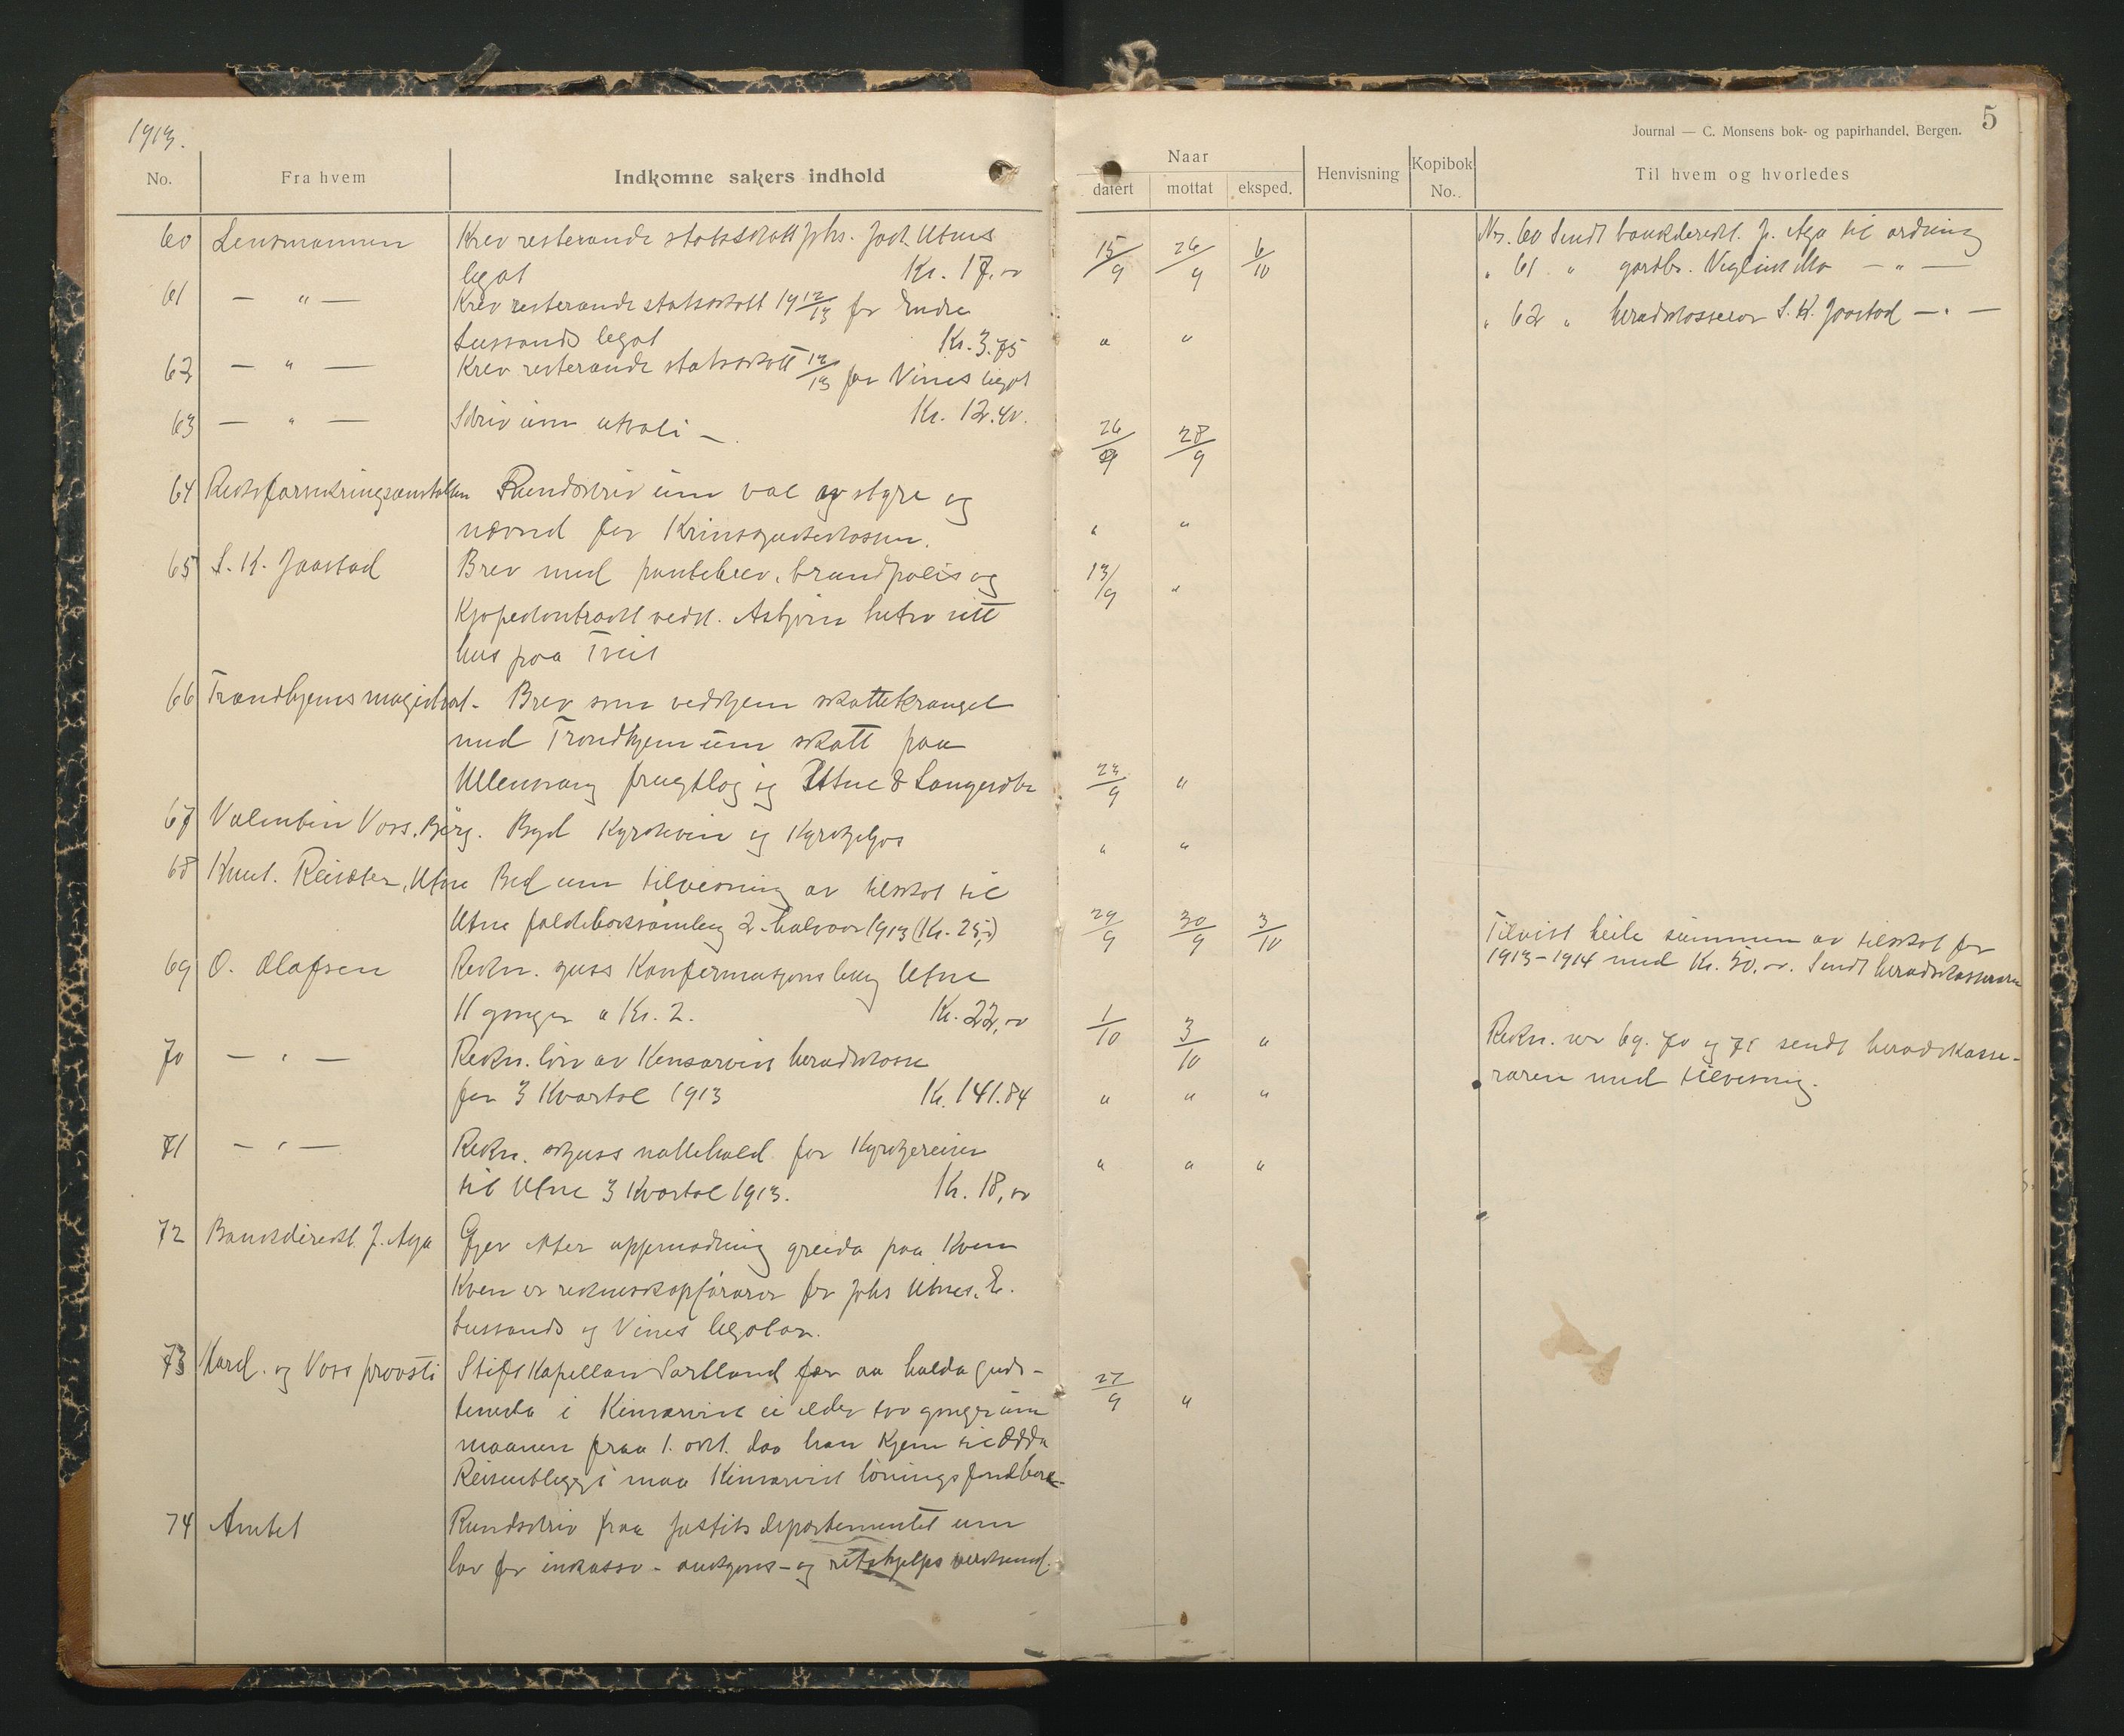 1913.
5
Journal — C. Monsens bok- og papirhandel, Bergen.
No. Fra hvem Indkomne sakers indhold Naar datert mottat eksped. Henvisning Kopibok No. Til hvem og hvorledes
60 Lensmannen Krev resterande statsskatt Johs. Jach. Utnes
legat Kr. 17,00 15/9 26/9 6/10 Nr. 60 Sendt bankdirekt. J. Aga til ordning
61 — " — Krev resterande statsskatt 19 12/13 for Endre
Lussands legat Kr. 3.75 " " " 61 " gardbr. Mo — " —
62 — " — Krev resterande statsskatt 12/13 for Vines legat
Kr. 12.40. " 62 " heradskasserar S. K. Jaastad — " —
63 — " — Skriv um utvali — 26/9 28/9
64 Riksforsikringsanstalten Rundskriv um val av styre og
nævnd for Krinssjukekassen. " "
65 S. K. Jaastad Brev med pantebrev, brandpolis og
Kjøpekontrakt vedk. Asbjørn sitt
hus paa Treit 13/9 "
66 Trondhjems magistrat - Brev som vedkjem skattekrangel
med Trondhjem um skatt paa
Ullensvang frugtlag og Utne & 23/9 "
67 Valentin Voss, Bjørg. Byd Kyrkjevin og Kyrkjeljos " "
68 Knut. Reisæter, Utne Bed um tilvisning av tilskot til
Utne folkeboksamling 2. halvaar 1913 (Kr. 25,-) 29/9 30/9 3/10 Tilvist heile summen av tilskot for
1913-1914 med Kr. 50,00. Sendt heradskasseraren
69 O. Olafsen Rekn. Konfirmasjons Utne
11 gonger a Kr. 2. Kr. 22,00 1/10 3/10 " Rekn. nr 69. 70 og 71 sendt heradskasse-
70 — " — Rekn. løn av Kinsarvik heradskasse
for 3 Kvartal 1913 Kr. 141.84 " " " raren med tilvisning.
71 — " — Rekn. skjuss nattehald for Kyrkjereiser
til Utne 3 Kvartal 1913. Kr. 18,00 " " "
72 Bankdirekt. J. Aga Gjev etter uppmoding greida paa Kven
Kven er rekneskapsførarar for Johs Utnes, E.
Lussands og Vines legatar.
73 Hard. og Voss provsti Stiftskapellan fær aa halda guds-
tenesta i Kinsarvik ei elder tvo gonger um
maanen fraa 1. okt. daa han kjem til Odda
Reiseutleggi maa Kinsarvik lønings fond bera- 27/9 "
74 Amtet Rundskriv fraa Justitsdepartementet um
lov for inkasso- auksjons- og rettshjelps verksemd.